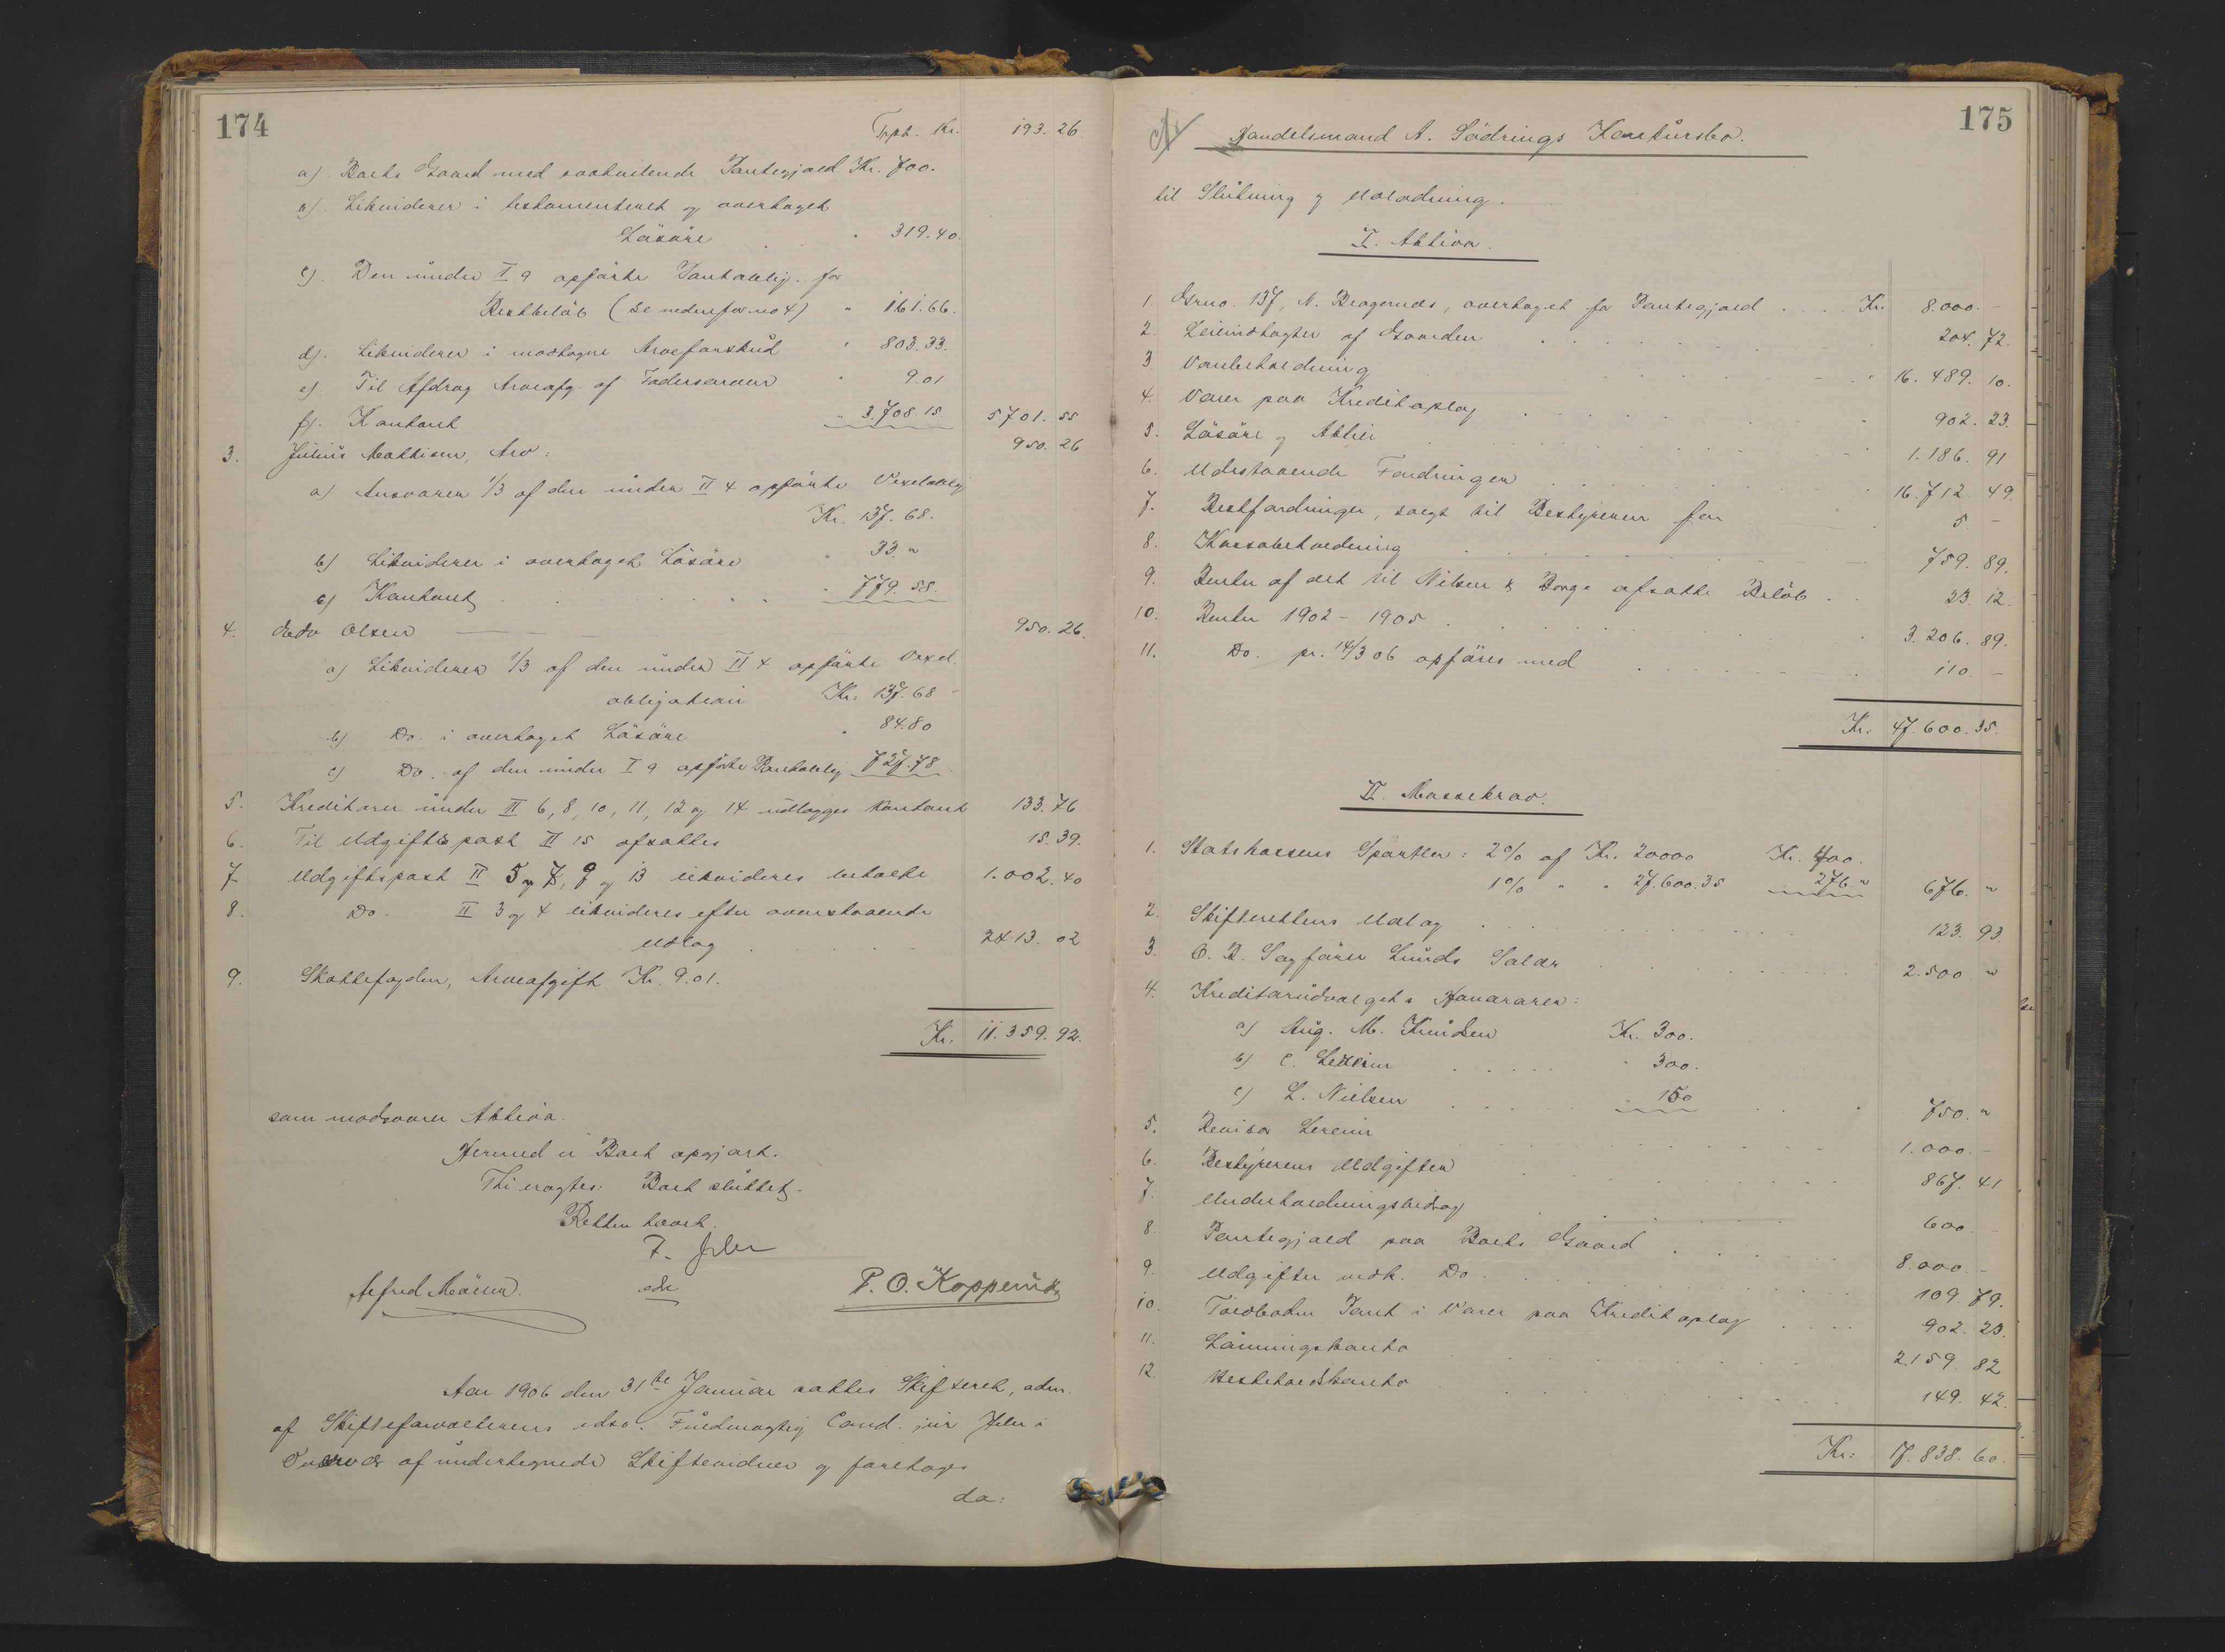 174
Trpt. Kr. 193.26
a). Boets Gaard med paahvilende Pantegjæld Kr. 700.
b). Likviderer i testamenteret og overtaget
Løsøre " 319.40.
c). Den under I 9 opførte Pantobblig. for
Restbeløb (se nedenfor no 4) " 161.66.
d). Likviderer i modtagne Arveforskud " 803.33.
e). Til Afdrag Arveafg. af Fadersarven " 9.01
f). Kontant " 3.708 15. 5701.55
3. Julius Mathisen, Arv: 950.26
a) Ansvarer 1/3 af den under II 4 opførte Vexelobblig
Kr. 137.68.
b) Likviderer i overtaget Løsøre " 33 "
c) Kontant " 779.58.
4. Edv Olsen 950.26.
a) Likviderer 1/3 af den under II 4 opførte Vexel.
obligation Kr. 137.68
b) Do. i overtaget Løsøre " 84.80
c) Do. af den under I 9 opførte Pantobblig 727.78
5. Kreditorer under II 6, 8, 10, 11, 12 og 14 udlægges kontant 133.76
6. Til Udgiftspost II 15 afsættes 15.39.
7 Udgiftspost II 5 og 7, 9 og 13 likvideres betalte 1.002.40
8. Do. II 3 og 4 likvideres efter ovenstaaende
Udlæg 2413.02
9. Skattefogden, Arveafgift Kr. 9.01.
Kr. 11.359.92.
som modsvarer Aktiva.
Hermed er Boet opgjort.
Thi eragtes: Boet sluttet.
Retten hævet.
P. O. Kopperud
Aar 1906 den 31te Januar sattes Skifteret, adm.
af Skifteforvalterens edsv. Fuldmægtig Cand. jur
Overvær af undertegnede Skiftevidner og foretoges
da:
175
Handelsmand A. Södrings Konkursbo.
til Slutning og Udlodning.
I. Aktiva.
1. Grno. 137, N. Bragernes, overtaget for Pantegjæld Kr. 8.000.-
2. Leieindtægter af Gaarden 204.72.
3 Varebeholdning " 16.489.10.
4. Varer paa Kreditoplag 902.23.
5. Løsøre og Aktier 1.186.91
6. Udestaaende Fordringer 16.712.49.
7. Restfordringer, solgt til Bestyreren for 5 -
8. Kassabeholdning 759.89.
9. Renter af det til Nilsen & Borge afsatte Beløb 23.12.
10. Renter 1902-1905 3.206.89.
11. Do. pr. 14/3 06 opføres med 110.-
Kr. 47.600.35.
II. Massekrav.
1. Statskassens Sportler: 2% af Kr. 20000 Kr. 400.
1% " " 27.600.35 276." 676. "
2. Skifterettens Udlæg 123.93
3. O. R. Sagfører Lunds Salær 2.500 "
4. Kreditorudvalgets Honorarer:
a) Aug. M. Knudsen Kr. 300.
b) C. " 300.
c) L. Nielsen " 150 750."
5. Revisor 1.000.-
6. Bestyrerens Udgifter 867.41
7. Underholdningsbidrag 600
8. Pantegjæld paa Boets Gaard 8.000.-
9. Udgifter vedk. Do. 109.79.
10. Toldboden Pant i Varer paa Kreditoplag 902.23.
11. Lønningskonto 2.159.82
12. Hesteholdskonto 149.42.
Kr: 17.838.60.